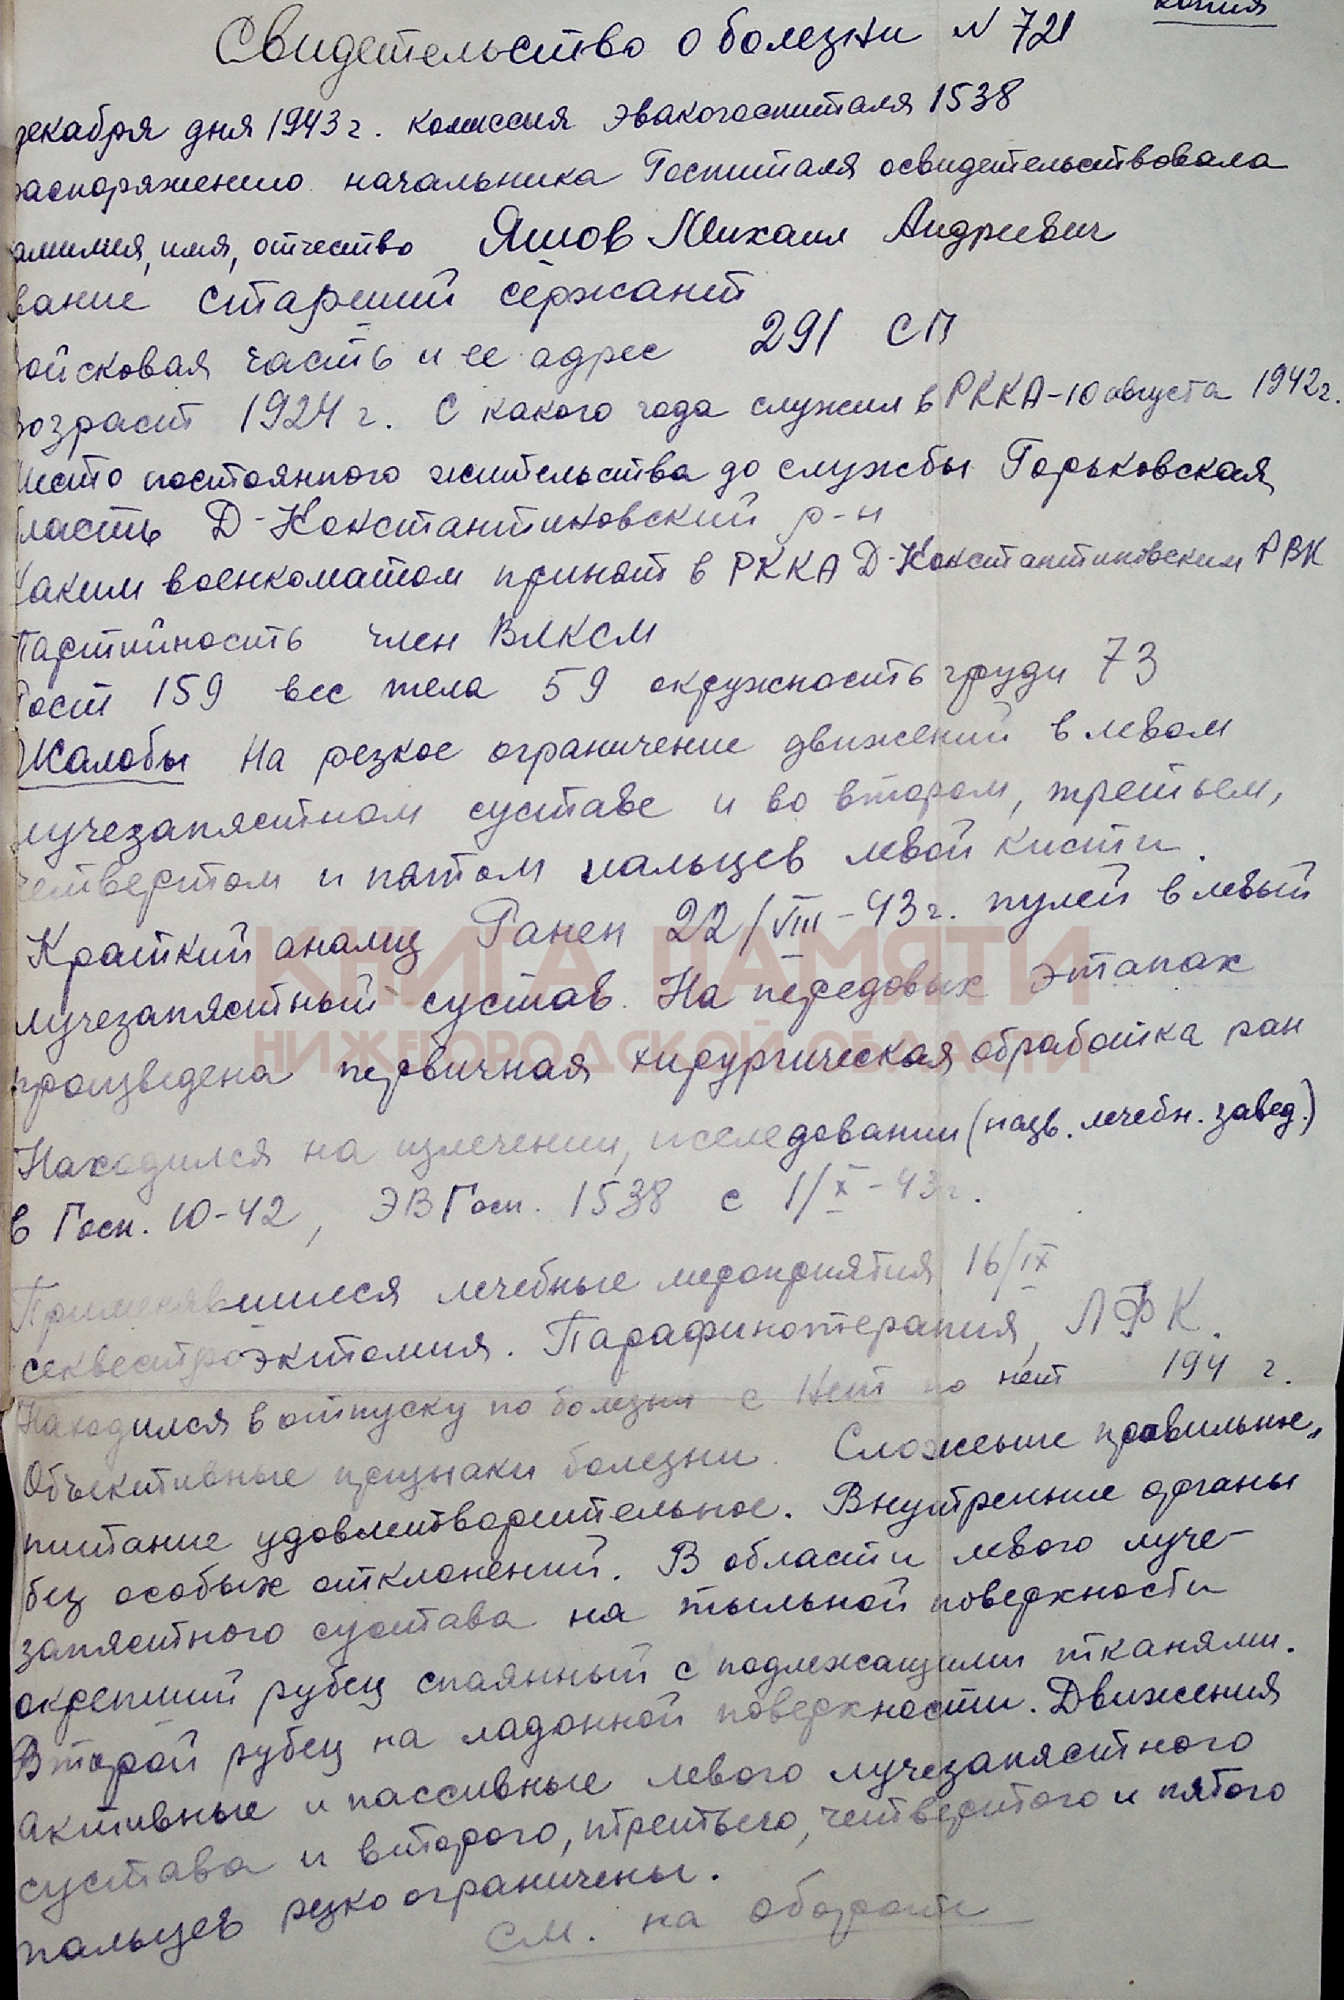 копия
Свидетельство о болезни N 721
декабря дня 1943 г. комиссия эвакогоспиталя 1538
распоряжению начальника Госпиталя освидетельствовала
амилия, имя, отчество Яшов Михаил Андреевич
вание старший сержант
ойсковая часть и ее адрес 291 СП
возраст 1924 г. С какого года служил в РККА-10 августа 1942 г.
Место постоянного жительства до службы Горьковская
бласть Д-Константиновский р-н
Каким военкоматом принят в РККА Д-Константиновским РВК
Партийность член ВЛКСМ
Рост 159 вес тела 59 окружность груди 73
Жалобы На резкое ограничение движений в левом
лучезапястном суставе и во втором, третьем,
четвертом и пятом пальцев левой кисти.
Краткий анамнез Ранен 22/VIII-43 г. пулей в левый
лучезапястный сустав. На передовых этапах
произведена первичная хирургическая обработка ран
Находился на излечении, иследовании (назв. лечебн. завед.)
в Госп. 10-42, ЭВГосп. 1538 с 1/X-43 г.
Применявшиеся лечебные мероприятия 16/IX
секвестроэктомия. Парафинотерапия, ЛФК.
Находился в отпуску по болезни с Нет по нет 194 г.
Объективные признаки болезни. Сложение правильное,
питание удовлетворительное. Внутренние органы
без особых отклонений. В области левого луче-
запястного сустава на тыльной поверхности
окрепший рубец спаянный с подлежащими тканями.
Второй рубец на ладонной поверхности. Движения
активные и пассивные левого лучезапястного
сустава и второго, третьего, четвертого и пятого
пальцев резко ограничены.
см. на обороте
КНИГА ПАМЯТИ
НИЖЕГОРОДСКОЙ ОБЛАСТИ